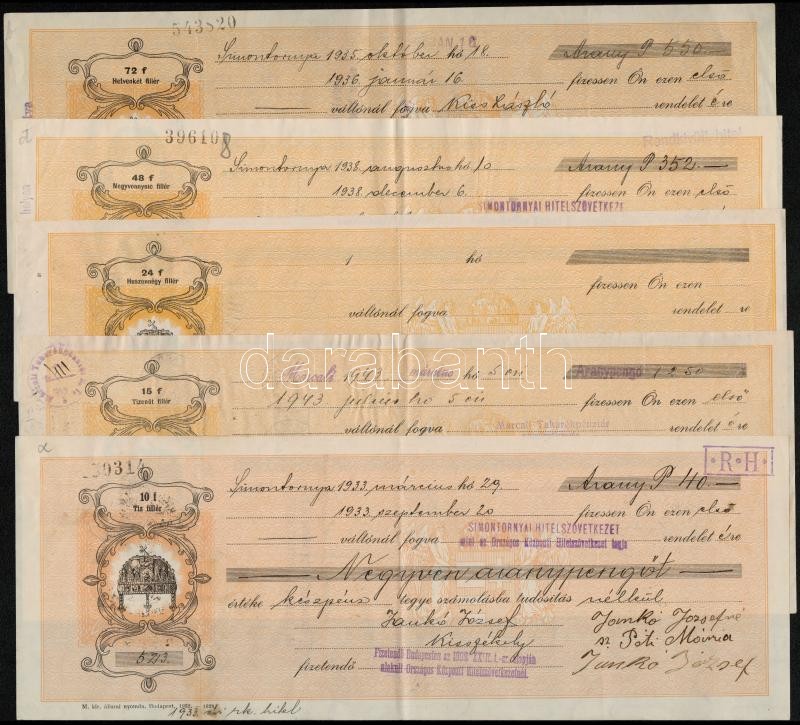 543820
JAN 16
72 f
Hetvenkét fillér
Simontornya 1935. október hó 18. Arany P 550.—
1936. január 16. fizessen Ön ezen első
váltónál fogva Kiss László rendelet ére
396108
48 f
Negyvennyolc fillér
Simontornya 1938. augusztus hó 10 Arany P 352.—
1938. december 6. fizessen Ön ezen első
SIMONTORNYAI HITELSZÖVETKEZET
24 f
Huszonnégy fillér
1 hó
fizessen Ön ezen
váltónál fogva rendelet re
15 f
Tizenöt fillér
Marcali 1943 március hó 5 én Aranypengő 1250
1943 július hó 5 én fizessen Ön ezen első
váltónál fogva Marcali Takarékpénztár rendelet ére
darabanth
R.H
10 f
Tíz fillér
Simontornya 1933. március hó 29. Arany P 40.—
1933. szeptember 20 fizessen Ön ezen első
váltónál fogva SIMONTORNYAI HITELSZÖVETKEZET rendelet ére
mint az Országos Központi Hitelszövetkezet tagja
Negyven aranypengőt
értéke készpénz s tegye számolásba tudósítás nélkül.
Jankó József Jankó Józsefné
Kisszékely Póti Mária
fizetendő Fizetendő Budapesten az alapján Jankó József
alakult Országos Központi Hitelszövetkezetnél.
523.
M. kir. állami nyomda. Budapest,